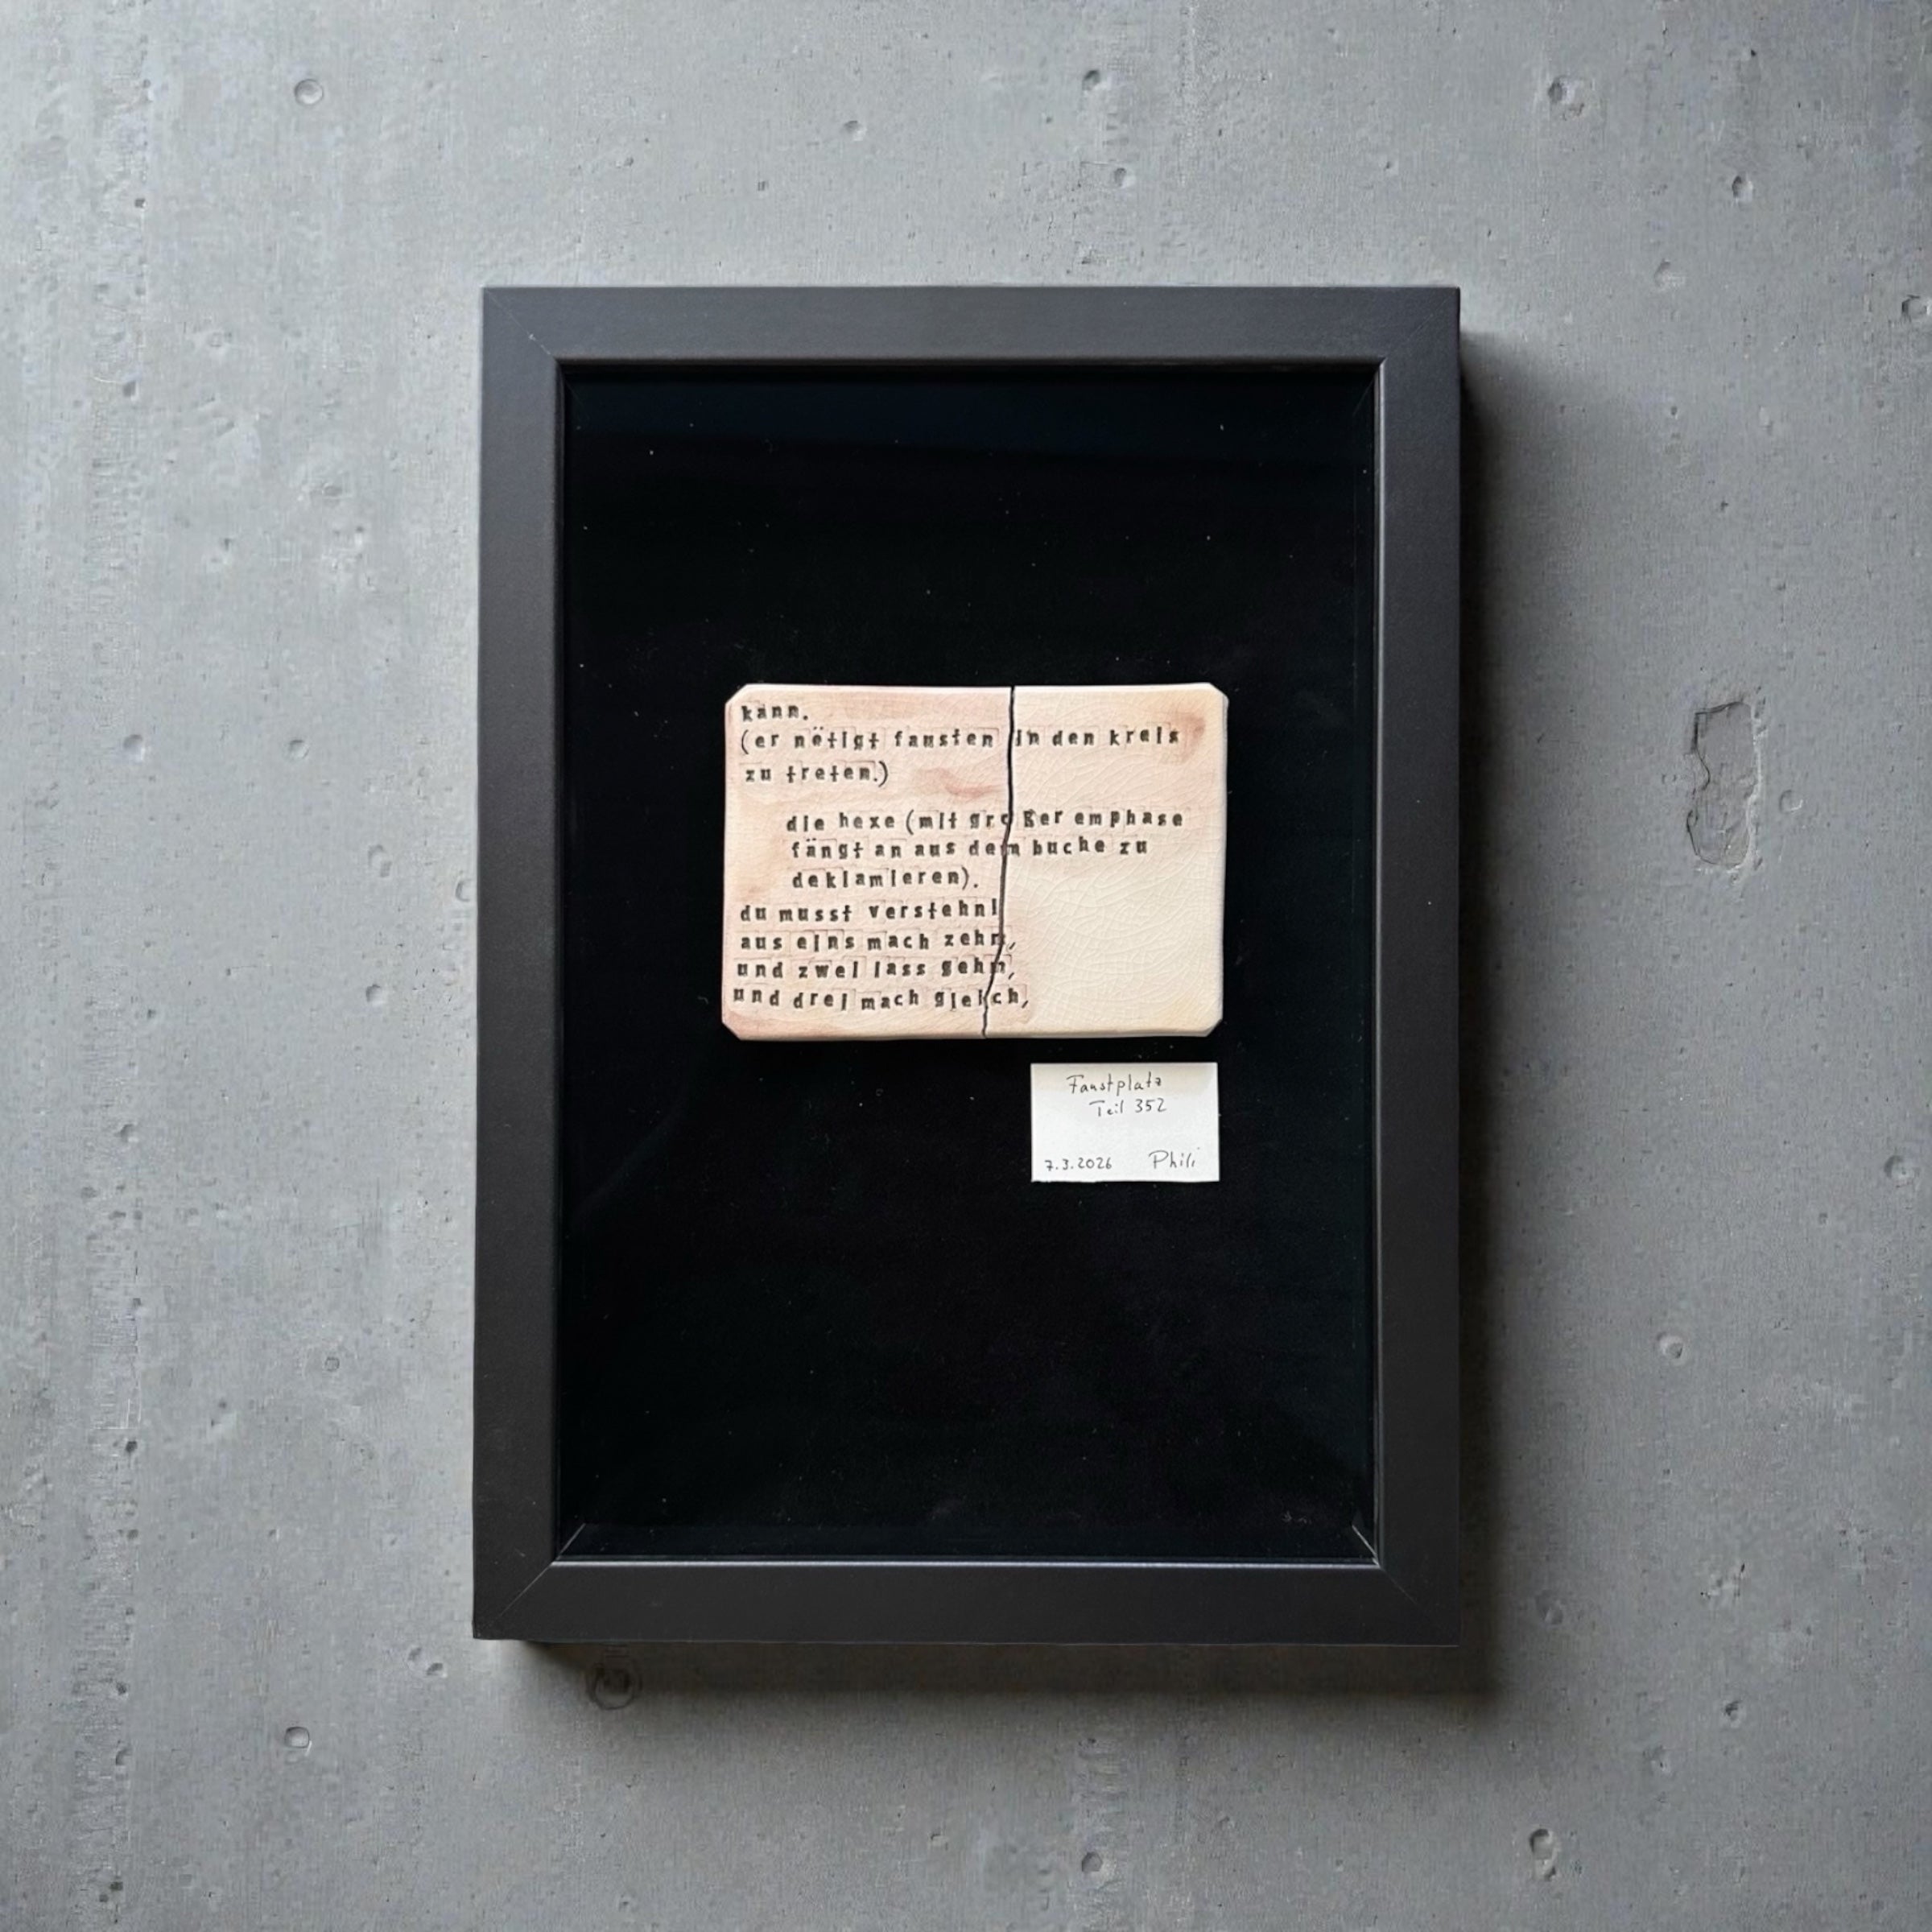 kann.
(er nötigt fausten in den kreis
zu treten.)
die hexe (mit großer emphase
fängt an aus dem buche zu
deklamieren).
du musst verstehn!
aus eins mach zehn,
und zwei lass gehn,
und drei mach gleich,
Faustplatz
Teil 352
7.3.2026 Phili